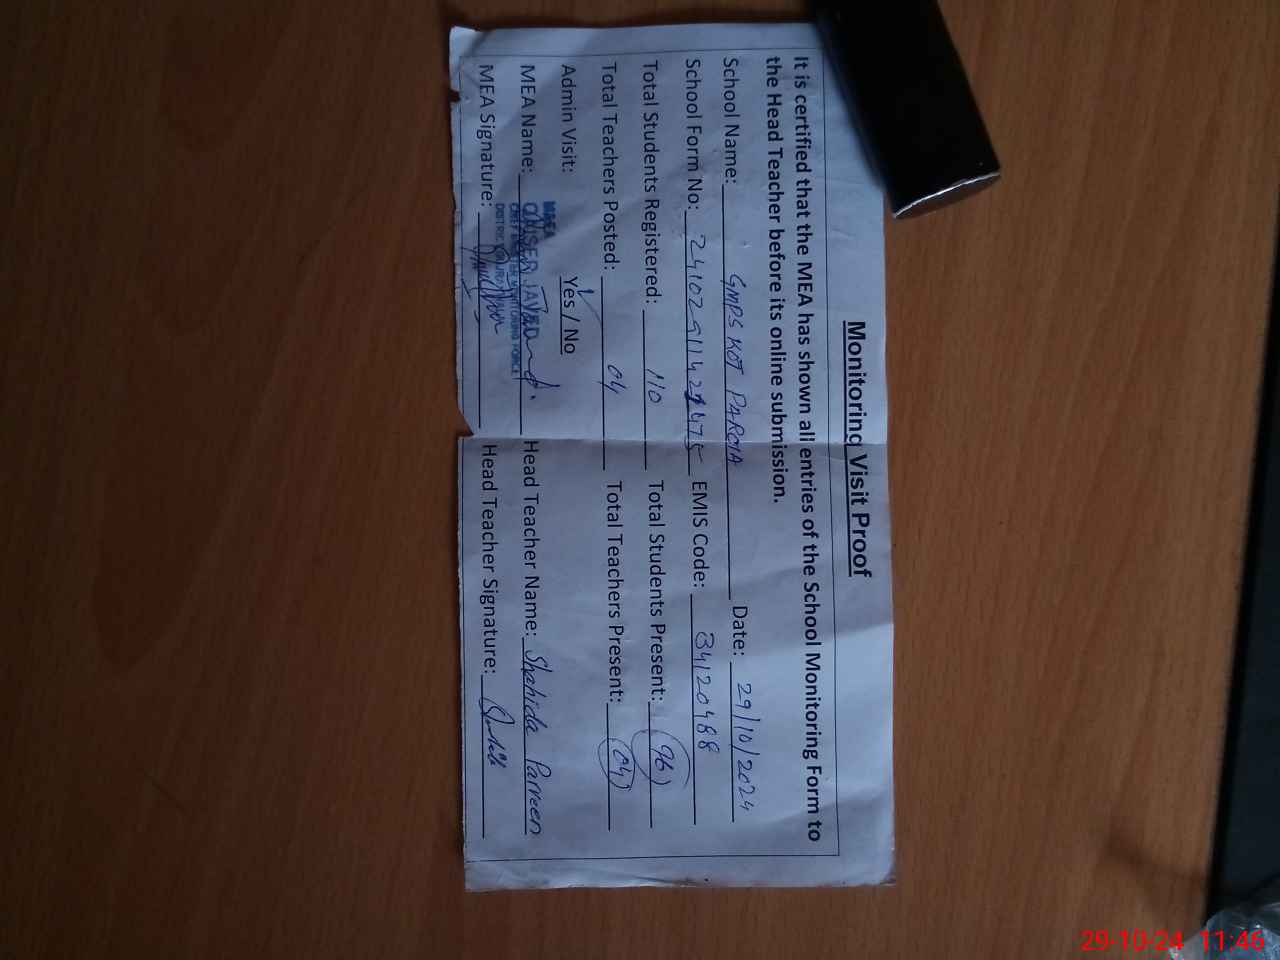 Monitoring Visit Proof
It is certified that the MEA has shown all entries of the School Monitoring Form to
the Head Teacher before its online submission.
School Name: GMPS KOT PAROIA Date: 29/10/2024
School Form No: EMIS Code: 34120488
Total Students Registered: 110 Total Students Present: 96
Total Teachers Posted: 04 Total Teachers Present: 04
Admin Visit: Yes / No
MEA Name: Head Teacher Name: Shahida Parveen
MEA Signature: Head Teacher Signature:
MEA
QAISER JAVED
CHIEF MINISTER MONITORING FORCE
DISTRICT
29-10-24 11:46